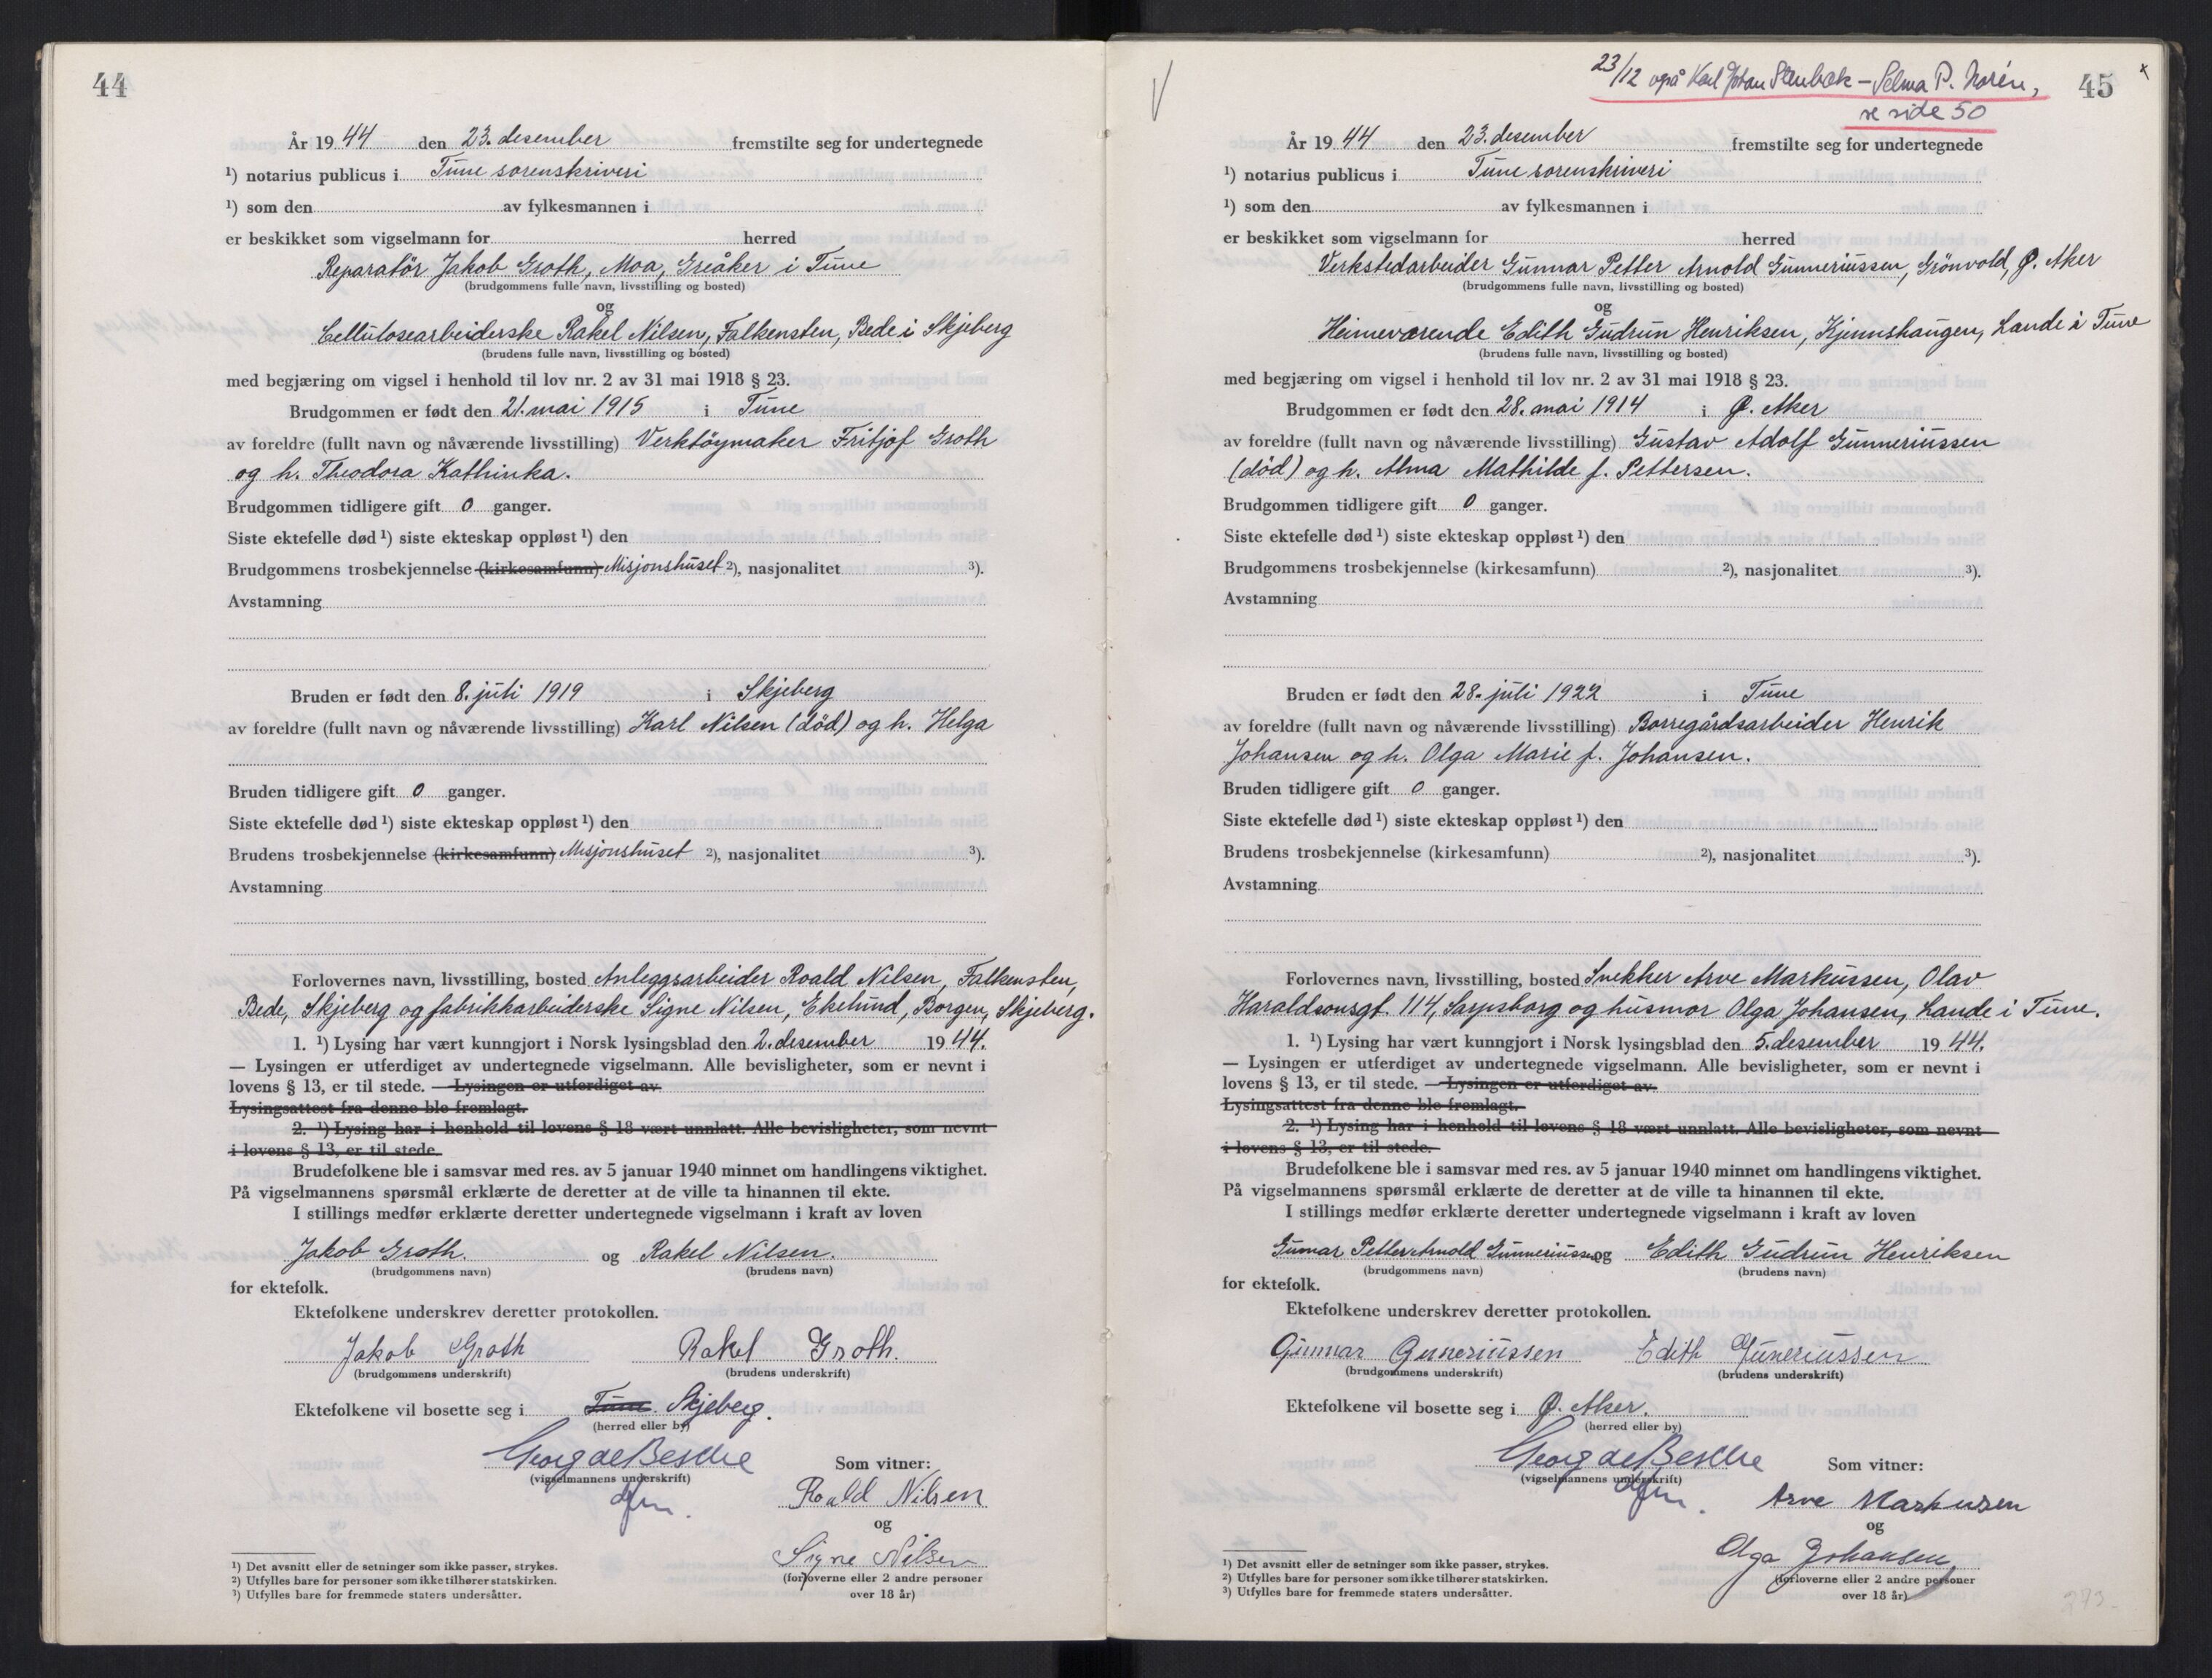 44
År 1944 den 23. desember fremstilte seg for undertegnede
¹) notarius publicus i Tune sorenskriveri
¹) som den av fylkesmannen i
er beskikket som vigselmann for herred
Reparatör Jakob Groth, Moa, Greåker i Tune
(brudgommens fulle navn, livsstilling og bosted)
og
Cellulosearbeiderske Rakel Nilsen, Falkensten, Bede i Skjeberg
(brudens fulle navn, livsstilling og bosted)
med begjæring om vigsel i henhold til lov nr. 2 av 31 mai 1918 § 23.
Brudgommen er født den 21. mai 1915 i Tune
av foreldre (fullt navn og nåværende livsstilling) Verktöymaker Fritjof Groth
og h. Theodora Kathinka.
Brudgommen tidligere gift 0 ganger.
Siste ektefelle død ¹) siste ekteskap oppløst ¹) den
Brudgommens trosbekjennelse (kirkesamfunn) Misjonshuset ²), nasjonalitet ³).
Avstamning
Bruden er født den 8. juli 1919 i Skjeberg
av foreldre (fullt navn og nåværende livsstilling) Karl Nilsen (död) og h. Helga
Bruden tidligere gift 0 ganger.
Siste ektefelle død ¹) siste ekteskap oppløst ¹) den
Brudens trosbekjennelse (kirkesamfunn) Misjonshuset ²), nasjonalitet ³).
Avstamning
Forlovernes navn, livsstilling, bosted Anleggsarbeider Roald Nilsen, Falkensten,
Bede, Skjeberg og fabrikkarbeiderske Signe Nilsen, Ekelund, Borgen, Skjeberg.
1. ¹) Lysing har vært kunngjort i Norsk lysingsblad den 2. desember 1944.
— Lysingen er utferdiget av undertegnede vigselmann. Alle bevisligheter, som er nevnt i
lovens § 13, er til stede. — Lysingen er utferdiget av
Lysingsattest fra denne ble fremlagt.
2. ¹) Lysing har i henhold til lovens § 18 vært unnlatt. Alle bevisligheter, som nevnt
i lovens § 13, er til stede.
Brudefolkene ble i samsvar med res. av 5 januar 1940 minnet om handlingens viktighet.
På vigselmannens spørsmål erklærte de deretter at de ville ta hinannen til ekte.
I stillings medfør erklærte deretter undertegnede vigselmann i kraft av loven
Jakob Groth. og Rakel Nilsen.
(brudgommens navn) (brudens navn)
for ektefolk.
Ektefolkene underskrev deretter protokollen.
Jakob Groth Rakel Groth.
(brudgommens underskrift) (brudens underskrift)
Ektefolkene vil bosette seg i Tune. Skjeberg.
(herred eller by)
Georg de Besche Som vitner:
(vigselmannens underskrift)
Roald Nilsen
og
Signe Nilsen
(forloverne eller 2 andre personer
over 18 år)
¹) Det avsnitt eller de setninger som ikke passer, strykes.
²) Utfylles bare for personer som ikke tilhører statskirken.
³) Utfylles bare for fremmede staters undersåtter.
23/12 også Karl Johan Stenbæk – Selma P. Norén, 45
se side 50
År 1944 den 23. desember fremstilte seg for undertegnede
¹) notarius publicus i Tune sorenskriveri
¹) som den av fylkesmannen i
er beskikket som vigselmann for herred
Verkstedarbeider Gunnar Petter Arnold Gunneriussen, Grönvold, Ø. Aker
(brudgommens fulle navn, livsstilling og bosted)
og
Heimeværende Edith Gudrun Henriksen, Kjennshaugen, Lande i Tune
(brudens fulle navn, livsstilling og bosted)
med begjæring om vigsel i henhold til lov nr. 2 av 31 mai 1918 § 23.
Brudgommen er født den 28. mai 1914 i Ø. Aker
av foreldre (fullt navn og nåværende livsstilling) Gustav Adolf Gunneriussen
(död) og h. Alma Mathilde f. Pettersen.
Brudgommen tidligere gift 0 ganger.
Siste ektefelle død ¹) siste ekteskap oppløst ¹) den
Brudgommens trosbekjennelse (kirkesamfunn) ²), nasjonalitet ³).
Avstamning
Bruden er født den 28. juli 1922 i Tune
av foreldre (fullt navn og nåværende livsstilling) Borregårdsarbeider Henrik
Johansen og h. Olga Marie f. Johansen.
Bruden tidligere gift 0 ganger.
Siste ektefelle død ¹) siste ekteskap oppløst ¹) den
Brudens trosbekjennelse (kirkesamfunn) ²), nasjonalitet ³).
Avstamning
Forlovernes navn, livsstilling, bosted Snekker Arve Markussen, Olav
Haraldsonsgt. 114, Sarpsborg og husmor Olga Johansen, Lande i Tune.
1. ¹) Lysing har vært kunngjort i Norsk lysingsblad den 5. desember 1944.
— Lysingen er utferdiget av undertegnede vigselmann. Alle bevisligheter, som er nevnt i
lovens § 13, er til stede. — Lysingen er utferdiget av
Lysingsattest fra denne ble fremlagt.
2. ¹) Lysing har i henhold til lovens § 18 vært unnlatt. Alle bevisligheter, som nevnt
i lovens § 13, er til stede.
Brudefolkene ble i samsvar med res. av 5 januar 1940 minnet om handlingens viktighet.
På vigselmannens spørsmål erklærte de deretter at de ville ta hinannen til ekte.
I stillings medfør erklærte deretter undertegnede vigselmann i kraft av loven
Gunnar Petter Arnold Gunneriussen og Edith Gudrun Henriksen
(brudgommens navn) (brudens navn)
for ektefolk.
Ektefolkene underskrev deretter protokollen.
Gunnar Guneriussen Edith Guneriussen
(brudgommens underskrift) (brudens underskrift)
Ektefolkene vil bosette seg i Ø. Aker.
(herred eller by)
Georg de Besche Som vitner:
(vigselmannens underskrift)
Arve Markusen
og
Olga Johansen
(forloverne eller 2 andre personer
over 18 år)
¹) Det avsnitt eller de setninger som ikke passer, strykes.
²) Utfylles bare for personer som ikke tilhører statskirken.
³) Utfylles bare for fremmede staters undersåtter.